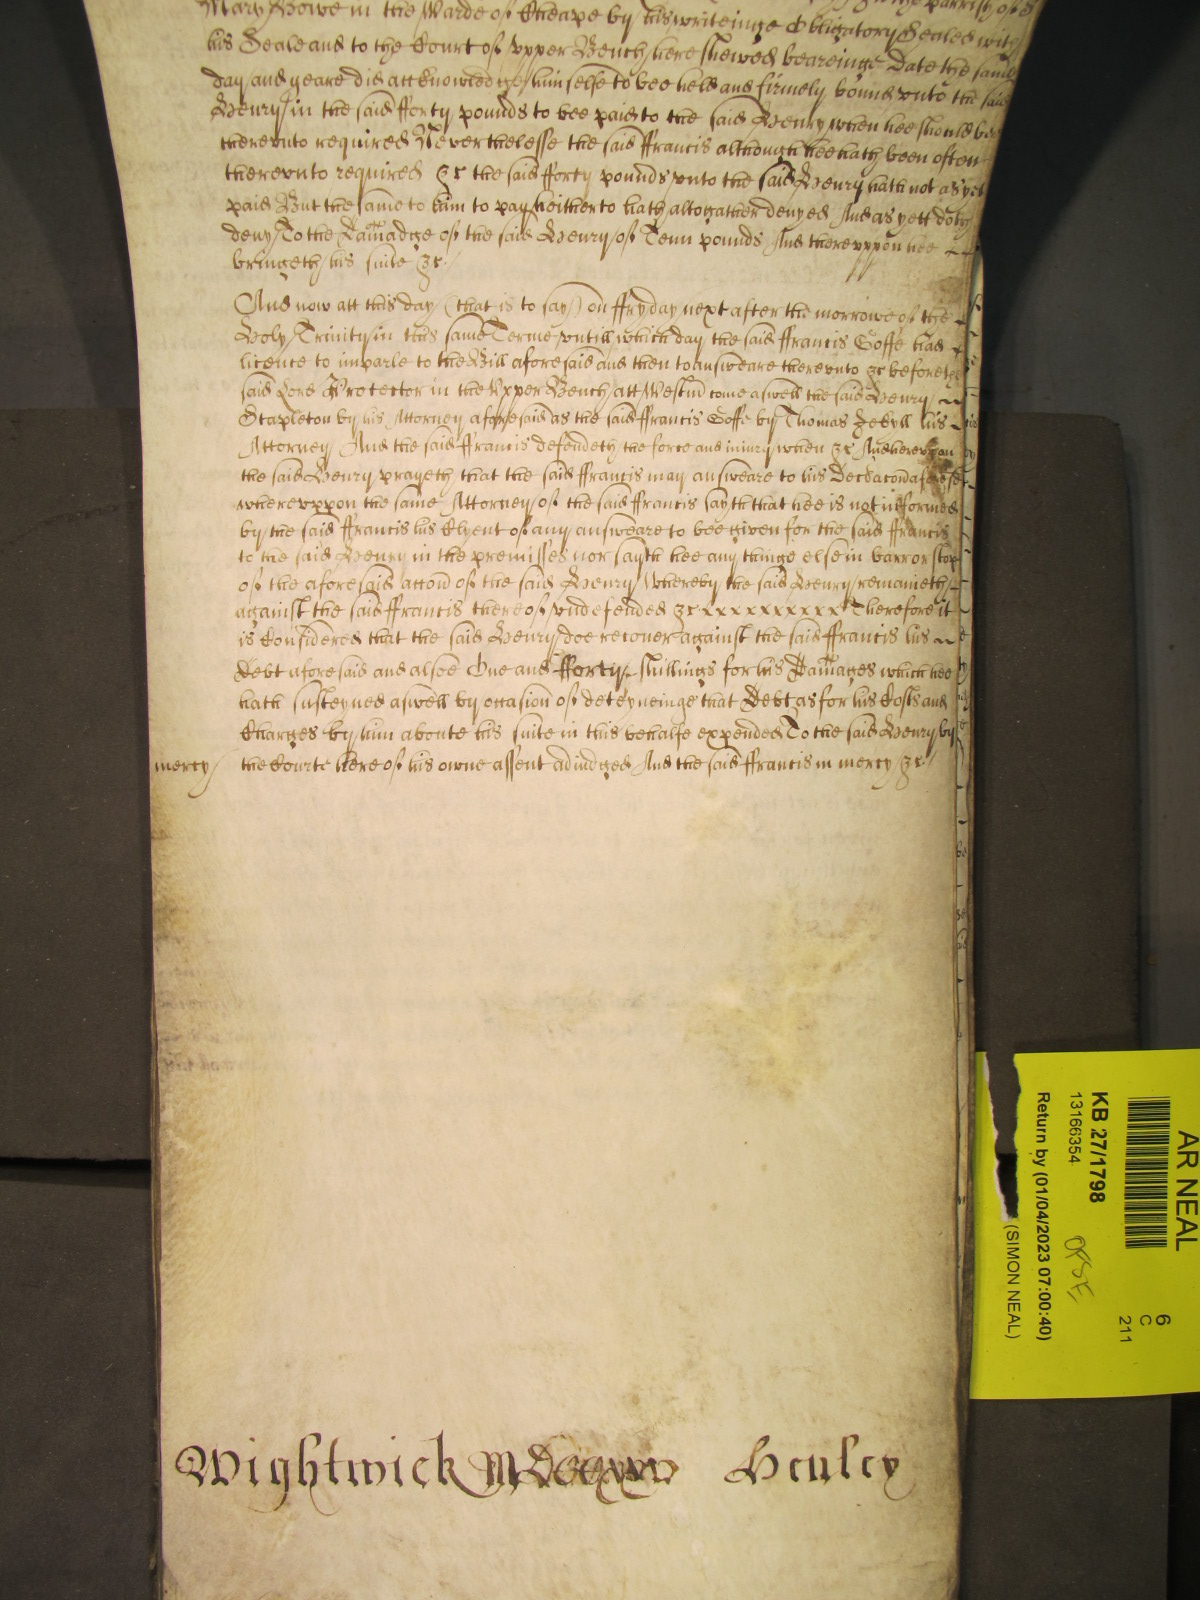 Mary Bowe in the Warde of Cheape by his writeinge Obligatory Sealed with
his Seale and to the Court of vpper Bench here shewed beareinge Date the same
day and yeare did acknowledge himselfe to bee held and firmely bound vnto the said
Henry in the said fforty pounds to bee paid to the said Henry when hee should bee
therevnto required Neverthelesse the said ffrancis although hee hath been often
therevnto required &c the said fforty pounds vnto the said Henry hath not as yet
paid But the same to him to pay hitherto hath altogather denyed And as yett doth
deny To the Damadge of the said Henry of Tenn pounds And therevppon hee
bringeth his suite &c
And now att this day (that is to say) on ffryday next after the morrowe of the
Holy Trinity in this same Terme vntill which day the said ffrancis Goffe had
licence to imparle to the Bill aforesaid and then to answeare therevnto &c before the
said Lord Protector in the Vpper Bench att Westm come aswell the said Henry
Stapleton by his Attorney aforesaid as the said ffrancis Goffe by Thomas Jekyll his
Attorney And the said ffrancis defendeth the force and iniury when &c And herevpon
the said Henry prayeth that the said ffrancis may answeare to his Declaracon aforesd
wherevppon the same Attorney of the said ffrancis sayth that hee is not informed
by the said ffrancis his Clyent of any answeare to bee given for the said ffrancis
to the said Henry in the premisses nor sayth hee any thinge else in barr or stop
of the aforesaid accon of the said Henry Whereby the said Henry remaineth
against the said ffrancis thereof vndefended &c x x x x x x x x x x Therefore it
is Considered that the said Henry doe recouer against the said ffrancis his
Debt aforesaid and alsoe One and fforty shillings for his Damages which hee
hath susteyned aswell by occasion of deteyneinge that Debt as for his Costs and
Charges by him aboute his suite in this behalfe expended To the said Henry by
mercy the Courte here of his owne assent adiudged And the said ffrancis in mercy &c
Wightwick Henley
AR NEAL
6
C
211
KB 27/1798
13166354
Return by (01/04/2023 07:00:40)
(SIMON NEAL)